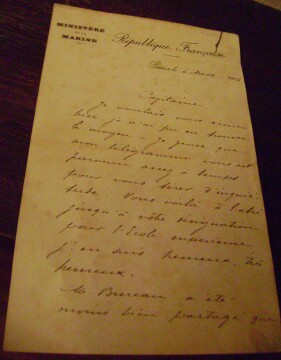 MINISTÈRE
DE LA
MARINE
République Française
Paris le 6 Mars
Capitaine,
Je voulais vous
hier, je n'ai pu en trouver
le moyen. Je pense que
mon télégramme vous est
parvenu assez à temps
pour vous tirer d'inquié-
tude. Vous voilà à l'abri
jusqu'à votre désignation
pour l'Ecole supérieure
j'en suis heureux, très
heureux.
Mr Bureau a été
moins bien partagé que